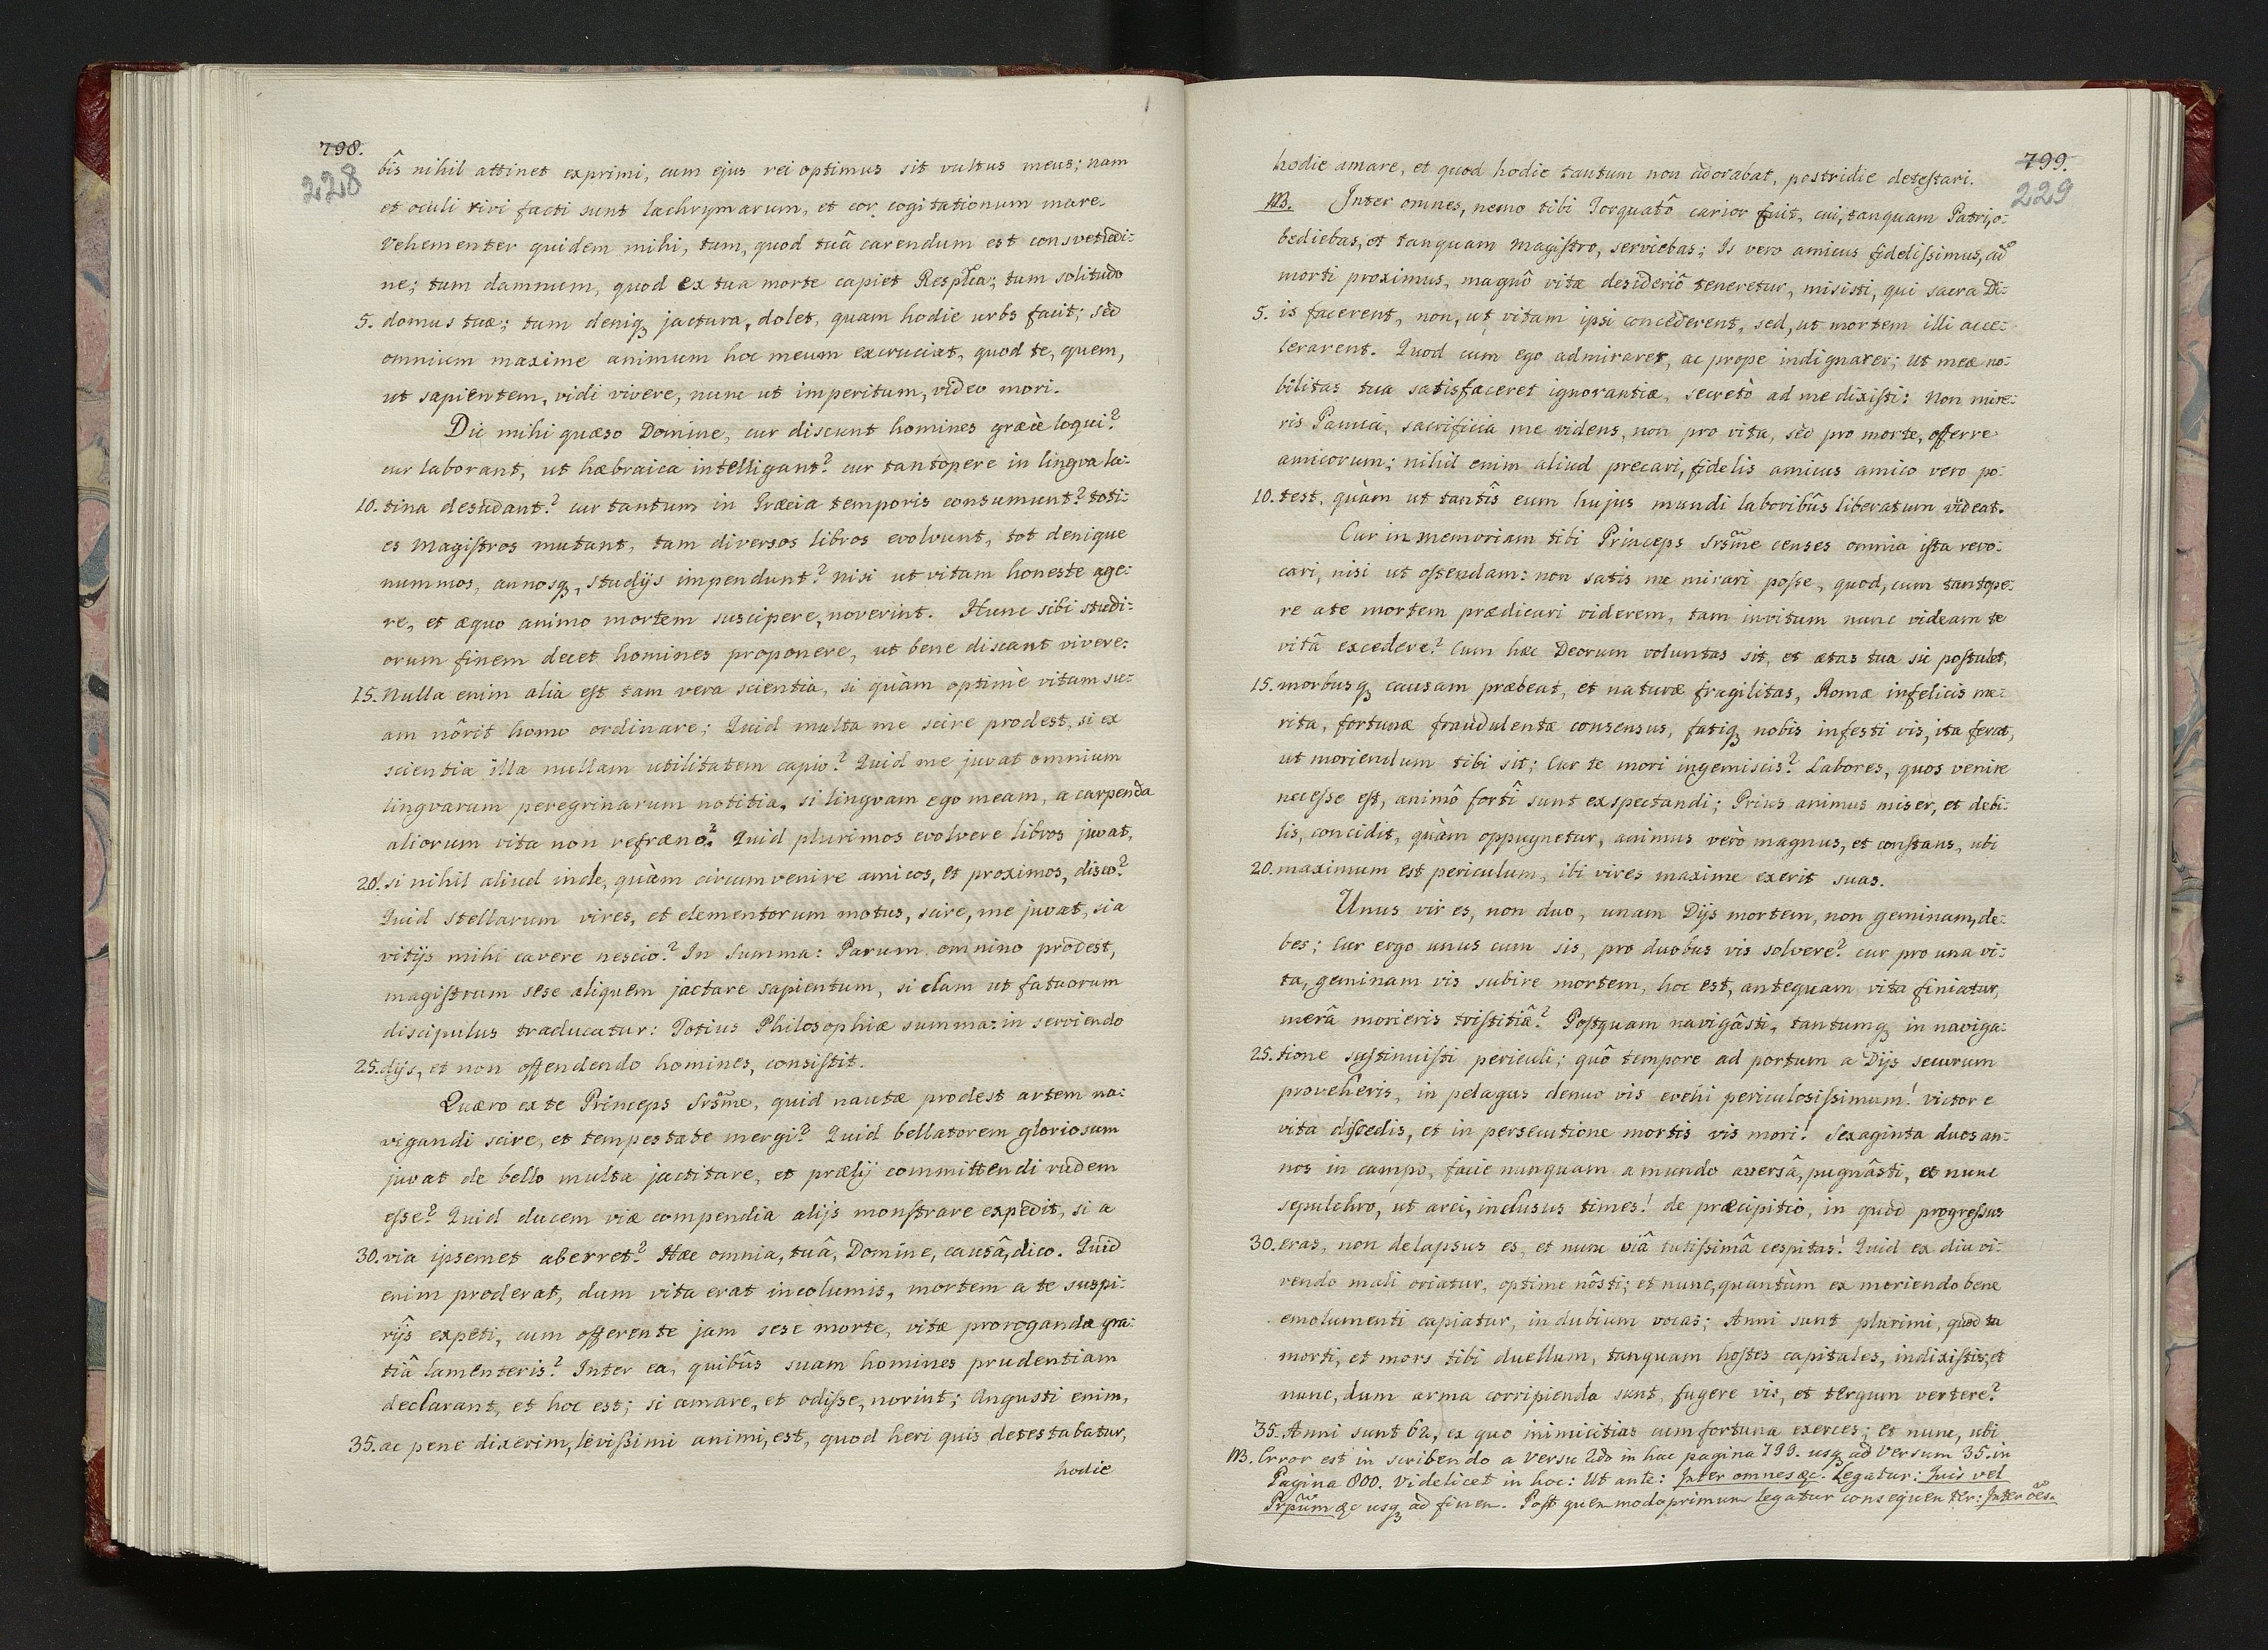 798.
228
bîs nihil attinet exprimi, cum ejus rei optimus sit vultus meus; nam
et oculi rivi facti sunt lachrymarum, et cor cogitationum mare.
Vehementer quidem mihi, tum, quod tuâ carendum est consvetudi:
ne; tum damnum, quod ex tua morte capiet Resplca; tum solitudo
5. domus tuæ; tum deniq jactura, dolet, quam hodie urbs facit; sed
omnium maxime animum hoc meum excruciat, quod te, quem,
ut sapientem, vidi vivere, nunc ut imperitum, video mori.
Dic mihi quæso Domine, cur discunt homines græcè loqui?
cur laborant, ut hæbraica intelligant? cur tantopere in lingva la:
10. tina desudant? cur tantum in Græcia temporis consumunt? toti:
es Magistros mutant, tam diversos libros evolvunt, tot denique
nummos, annosq, studijs impendunt? nisi ut vitam honeste age:
re, et æquo animo mortem suscipere, noverint. Hunc sibi studi:
orum finem decet homines proponere, ut bene discant vivere:
15. Nulla enim alia est tam vera scientia, si quàm optimè vitam su:
am nôrit homo ordinare; Quid multa me scire prodest, si ex
scientia illa nullam utilitatem capio? Quid me juvat omnium
lingvarum peregrinarum notitia, si lingvam ego meam, a carpenda
aliorum vita non refræno? Quid plurimos evolvere libros juvat,
20. si nihil aliud inde, quàm circumvenire amicos, et proximos, disco?
Quid stellarum vires, et elementorum motus, scire, me juvat, si a
vitijs mihi cavere nescio? In Summa: Parum omnino prodest,
magistrum sese aliquem jactare sapientum, si clam ut fatuorum
discipulus traducatur: Totius Philosophiæ summa: in serviendo
25. dijs, et non offendendo homines, consistit.
Quæro ex te Princeps Srsme, quid nautæ prodest artem na:
vigandi scire, et tempestate mergi? Quid bellatorem gloriosum
juvat de bello multa jactitare, et prælij committendi rudem
esse? Quid ducem viæ compendia alijs monstrare expedit, si a
30. via ipsemet aberret? Hæc omnia, tuâ, Domine, causâ, dico. Quid
enim proderat, dum vita erat incolumis, mortem a te suspi:
rijs expeti, cum offerente jam sese morte, vitæ prorogandæ gra:
tiâ lamenteris? Inter ea, quibûs suam homines prudentiam
declarant, et hoc est; si amare, et odisse, norint; Angusti enim,
35. ac pene dixerim, levissimi animi, est, quod heri quis detestabatur,
hodie
799.
229
hodie amare, et quod hodie tantum non adorabat, postridie detestari.
NB. Inter omnes, nemo tibi Torquatô carior fuit, cui, tanquam Patri, o:
bediebas, et tanquam Magistro, serviebas; Is vero amicus fidelissimus, ad
morti proximus, magnô vitæ desideriô teneretur, misisti, qui sacra Di:
5. is facerent, non, ut vitam ipsi concederent, sed, ut mortem illi acce:
lerarent. Quod cum ego admirarer, ac prope indignarer; ut meæ no:
bilitas tua satisfaceret ignorantiæ, secretò ad me dixisti: Non mire:
ris Panuci, sacrificia me videns, non pro vita, sed pro morte, offerre
amicorum; nihil enim aliud precari, fidelis amicus amico vero po:
10. test, quàm ut tantîs eum hujus mundi laboribûs liberatum videat.
Cur in memoriam tibi Princeps Srsme censes omnia ista revo:
cari, nisi ut ostendam: non satis me mirari posse, quod, cum tantope:
re a te mortem prædicari viderem, tam invitum nunc videam te
vitâ excedere? Cum hæc Deorum voluntas sit, et ætas tua sic postulet,
15. morbusq causam præbeat, et naturæ fragilitas, Romæ infelicis me:
rita, fortunæ fraudulentæ consensus, fatiq nobis infesti vis, ita ferat,
ut moriendum tibi sit; Cur te mori ingemiscis? Labores, quos venire
necesse est, animô fortî sunt exspectandi; Prius animus miser, et debi:
lis, concidit, quàm oppugnetur, animus verò magnus, et constans, ubi
20. maximum est periculum, ibi vires maxime exerit suas.
Unus vir es, non duo, unam Dijs mortem, non geminam, de:
bes; Cur ergo unus cum sis, pro duobus vis solvere? cur pro una vi:
ta, geminam vis subire mortem, hoc est, antequam vita finiatur,
merâ morieris tristitiâ? Postquam navigâsti, tantumq in naviga:
25. tione sustinuisti periculi; quô tempore ad portum a Dijs securum
proveheris, in pelagus denuo vis evehi periculosissimum! victor e
vita discedis, et in persecutione mortis vis mori! Sexaginta duos an:
nos in campo, facie nunquam a mundo aversâ, pugnâsti, et nunc
sepulchro, ut arci, inclusus times! de præcipitio, in quod progressus
30. eras, non delapsus es, et nunc viâ tutissimâ cespitas! Quid ex diu vi:
vendo mali oriatur, optime nôsti; et nunc, quantùm ex moriendo bene
emolumenti capiatur, in dubium vocas; Anni sunt plurimi, quod tu
morti, et mors tibi duellum, tanquam hostes capitales, indixistis, et
nunc, dum arma corripienda sunt, fugere vis, et tergum vertere?
35. Anni sunt 62, ex quo inimicitias cum fortuna exerces; et nunc, ubi
NB. Error est in scribendo a Versu 2do in hac pagina 799. usq ad Versum 35. in
Pagina 800. Videlicet in hoc: Ut ante: Inter omnes &c. Legatur: Quis vel
&c usq ad finem. Post quem modo primum legatur consequenter: Inter oes.